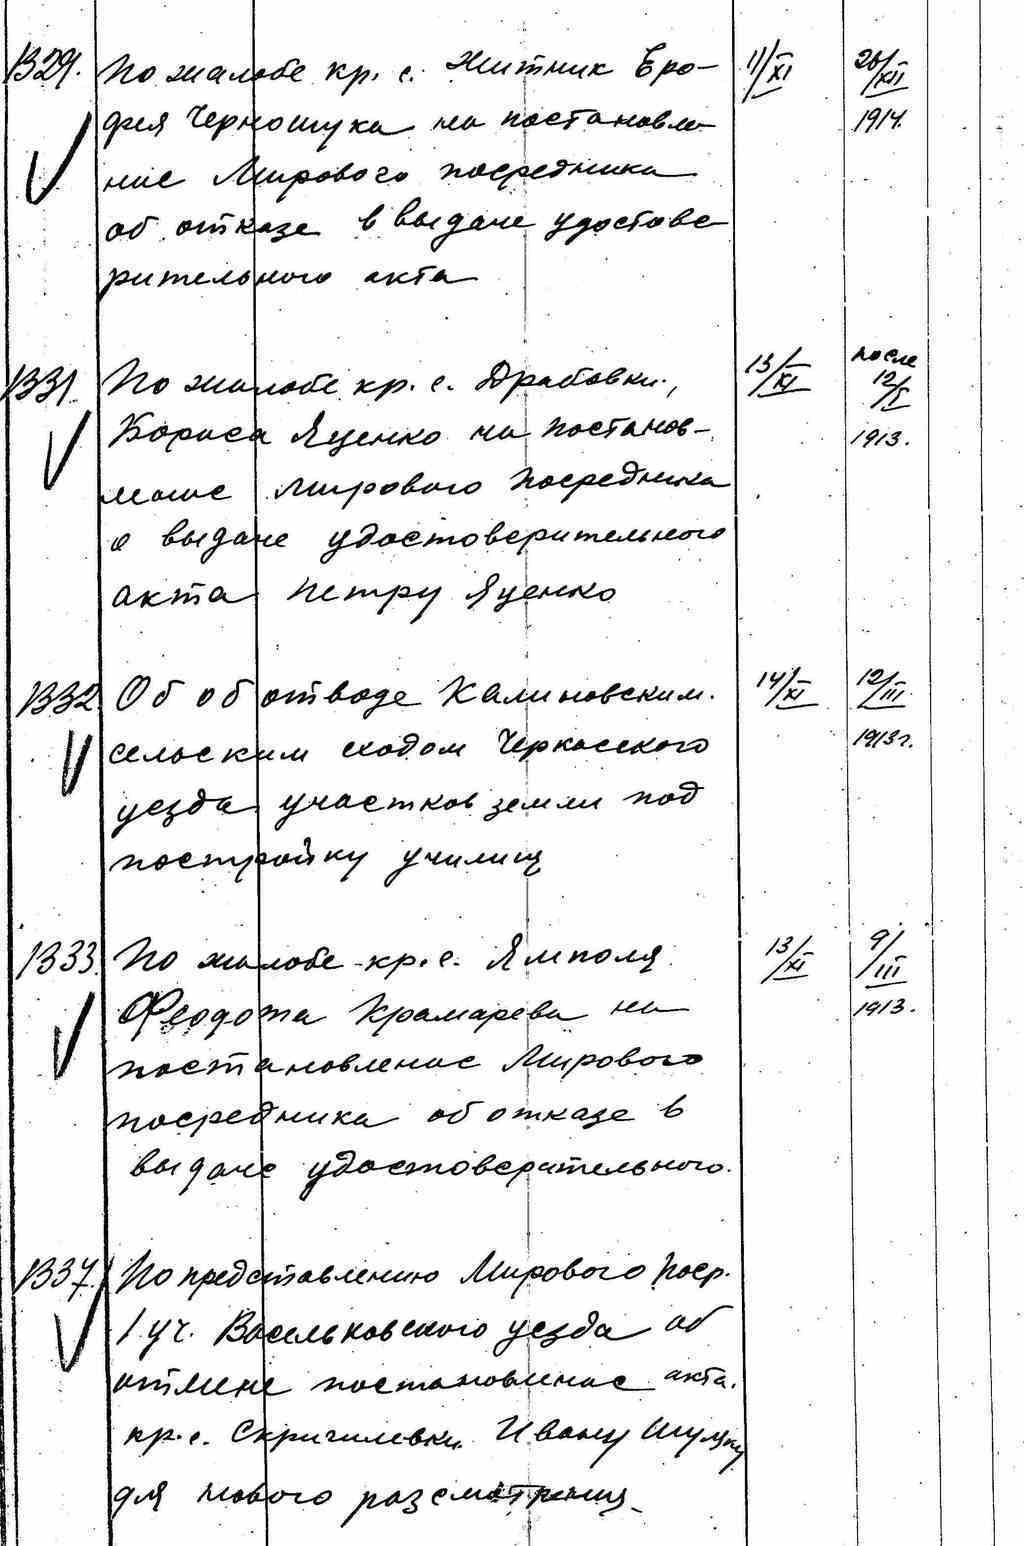 1329. По жалобе кр. с. Житник Еро- 11/XI 26/XII
фея Черношука на постановле- 1914.
ние Мирового посредника
об отказе в выдаче удостове
рительного акта
1331. По жалобе кр. с. Драбовки, 13/XI после 12/I
Бориса Яценко на постанов- 1913.
ление Мирового посредника
о выдаче удостоверительного
акта Петру Яценко
1332. Об об отводе Калиновским. 14/XI 12/III
сельским сходом Черкасского 1913 г.
уезда участков земли под
постройку училищ
1333. По жалобе кр. с. Ямполя 13/XI 9/III
Феодота Крамарева на 1913.
постановление Мирового
посредника об отказе в
выдаче удостоверительного.
1337. По представлению Мирового поср.
1 уч. Васильковского уезда об
отмене постановление акта.
кр. с. Ивану
для нового разсмотрения